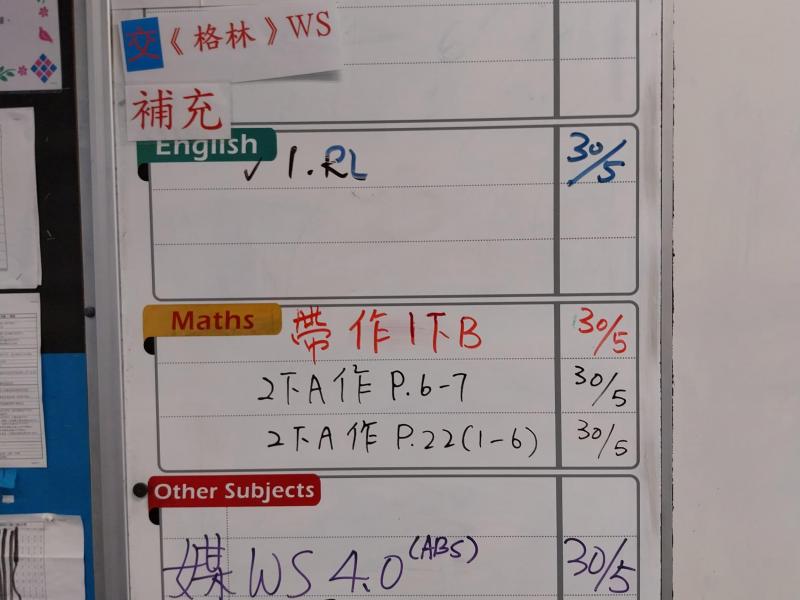 交《格林》WS
補充
English
✓ 1. RL 30/5
Maths 帶作1下B 30/5
2下A作 P.6-7 30/5
2下A作 P.22(1-6) 30/5
Other Subjects
媒 WS 4.0 (ABS) 30/5